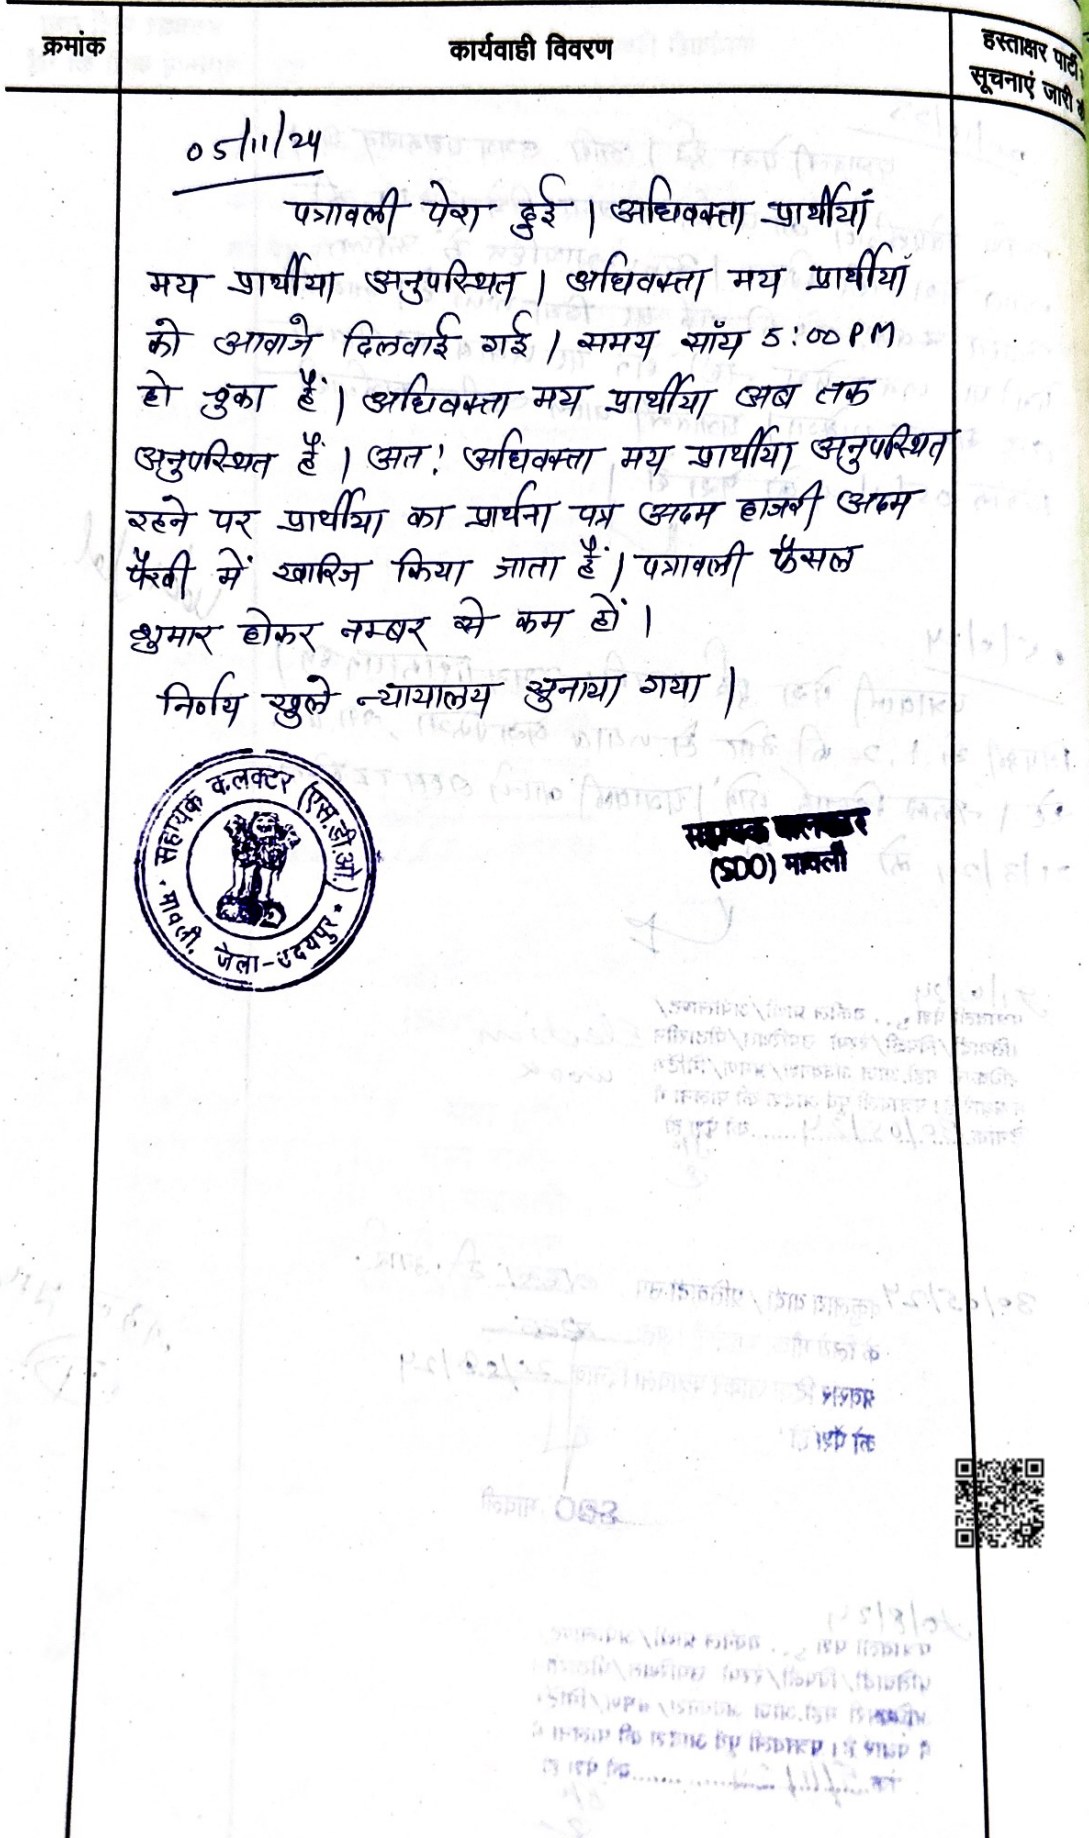 क्रमांक
कार्यवाही विवरण
हस्ताक्षर पार्टी
सूचनाएं जारी
05/11/24
पत्रावली पेश हुई । अधिवक्ता प्रार्थीयां
मय प्रार्थीया अनुपस्थित । अधिवक्ता मय प्रार्थीयाँ
को आवाजे दिलवाई गई । समय साँय 5:00 PM
हो चुका हैं । अधिवक्ता मय प्रार्थीया अब तक
अनुपस्थित हैं । अत: अधिवक्ता मय प्रार्थीया अनुपस्थित
रहने पर प्रार्थीया का प्रार्थना पत्र अदम हाजरी अदम
पैरवी में खारिज किया जाता हैं । पत्रावली फैसल
शुमार होकर नम्बर से कम हों ।
निर्णय खुले न्यायालय सुनाया गया ।
सहायक कलक्टर (एस.डी.ओ.)
मावली, जिला-उदयपुर
सहायक कलक्टर
(SDO) मावली